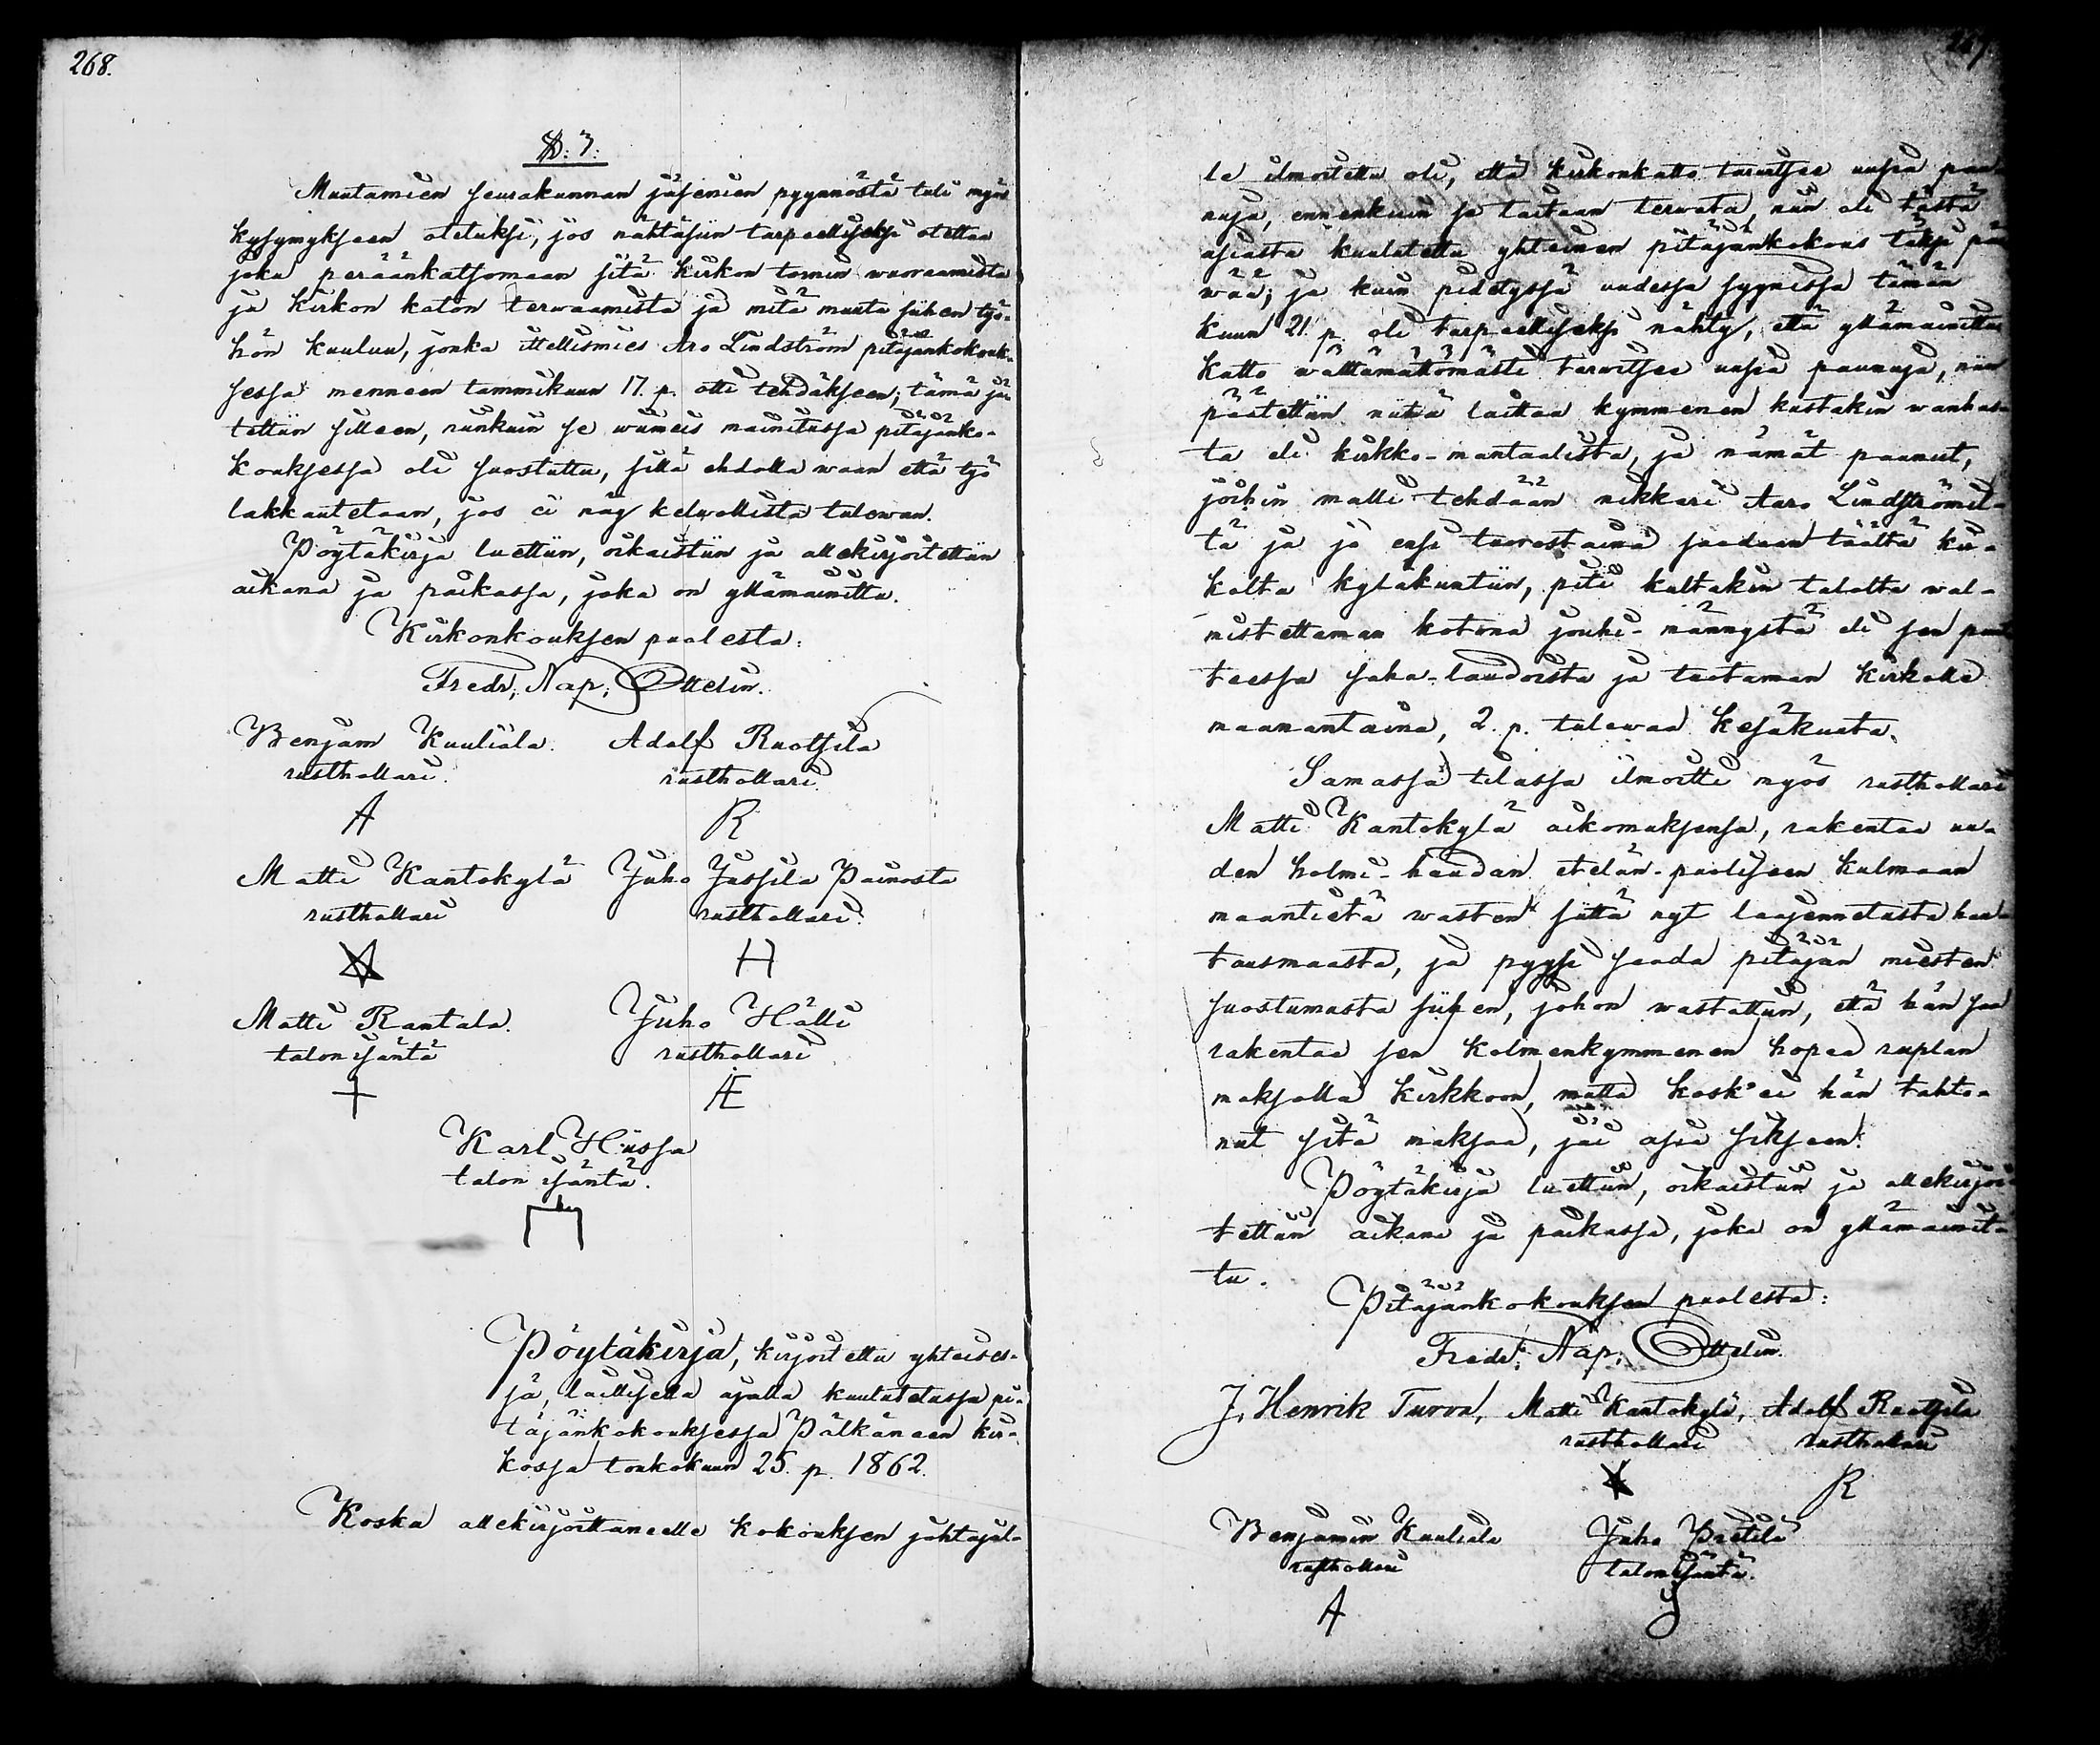 268.
§. 3.
Muutamien seurakunnan jäsenien pyynnöstä tuli myös
kysymykseen otetuksi, jos nähtäisiin tarpeelliseksi otettaa
joku peräänkatsomaan sitä kirkon tornin vuoraamista
ja kirkon katon terwaamista ja mitä muuta siihen työ-
hön kuuluu, jonka itellismies Aro Lindström pitäjänkokouk-
sessa menneen tammikuun 17. p. otti tehdäkseen; tämä jä-
tettiin silleen, niinkuin se wiimeis mainitussa pitäjänko-
kouksessa oli suostuttu, sillä ehdolla waan että työ
lakkautetaan, jos ei näy kelwollista tulewan.
Pöytäkirja luettiin, oikaistiin ja allekirjoitettiin
aikana ja paikassa, joka on yllämainittu.
Kirkonkouksen puolesta:
Fredr. Nap. Ottelin.
Benjam Kuuliala. Adolf Ruotsila
rusthollari. rusthollari
A R
Matti Kantokylä Juho Jussila Painosta
rusthollari rusthollari.
H
Matti Rantala. Juho Hälli
talon isäntä rusthollari
+ Æ
Karl Hiissa
talon isäntä.
Pöytäkirja, kirjoitettu yhteises-
sä, laillisella ajalla kuulutetussa pi-
täjänkokouksessa Pälkäneen kir-
kossa toukokuun 25. p. 1862.
Koska allekirjoittaneelle kokouksen johtajal-
le ilmoitettu oli, että kirkonkatto tarvitsee uusia paa-
nuja, ennenkuin se taitaan terwata, niin oli tästä
asiasta kuulutettu yhteinen pitäjänkokous täksi päi-
wää; ja kuin pidetyssä uudessa syynissä tämän
kuun 21. p. oli tarpeelliseksi nähty, että yllämainittu
katto wälttämättömästi tarvitsee uusia paanuja, niin
päätettiin niitä laittaa kymmenen kustakin wanhas-
ta eli kirkko-mantaalista, ja nämät paanut,
joihin malli tehdään nikkari Aaro Lindströmil-
tä ja jo ensi tuorestaina saadaan täältä kir-
kolta kyläkuntiin, piti kultakin talolta wal-
mistettaman kotona jouhi-männystä eli sen puut-
teessa saha-laudoista ja tuotaman kirkolle
maanantaina, 2. p. tulewaa Kesäkuuta.
Samassa tilassa ilmoitti myös rusthollari
Matti Kantokylä aikomuksensa, rakentaa uu-
den holmi-haudan etelän-puoliseen kulmaan
maantietä wasten siitä nyt laajennetusta hau-
tausmaasta, ja pyysi saada pitäjän miesten
suostumusta siihen, johon wastattiin, että hän saa
rakentaa sen kolmenkymmenen hopea ruplan
maksolla kirkkoon, mutta kosk' ei hän tahto-
nut sitä maksaa, jäi asia sikseen.
Pöytäkirja luettiin, oikaistiin ja allekirjoi-
tettiin aikana ja paikassa, joka on yllämainit-
tu.
Pitäjänkokouksen puolesta:
Fredr. Nap. Ottelin.
J. Henrik Turva, Matti Kantokylä, Adolf Ruotsila
rusthollari rusthollari
R
Benjamin Kuuliala Juho Prittilä
rusthollari talon isäntä.
A